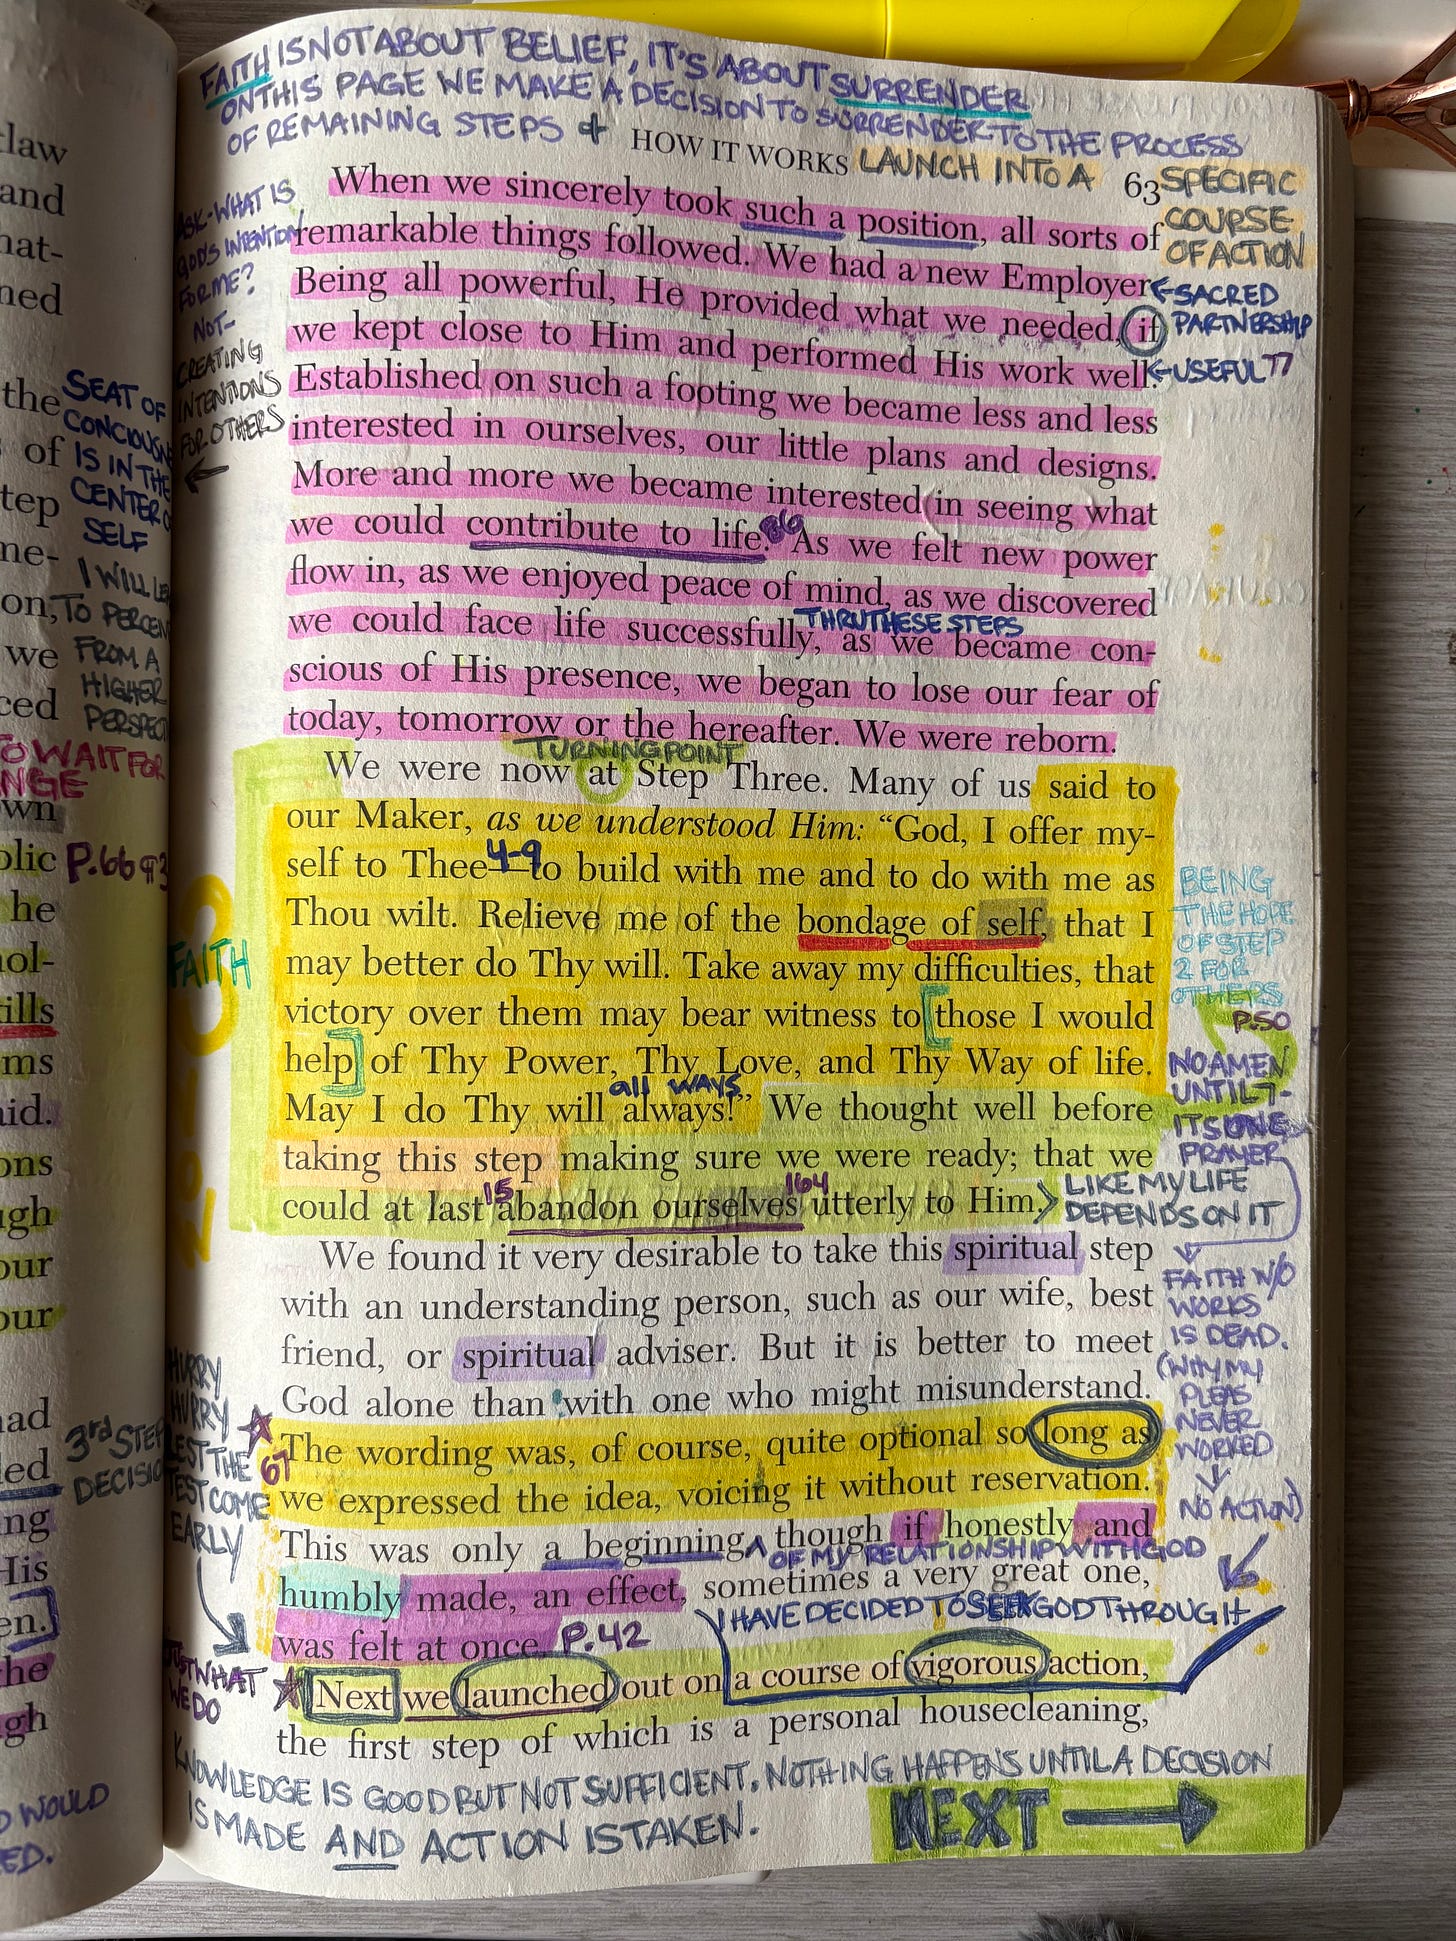 FAITH IS NOT ABOUT BELIEF, IT'S ABOUT SURRENDER
ON THIS PAGE WE MAKE A DECISION TO SURRENDER TO THE PROCESS
OF REMAINING STEPS +
HOW IT WORKS
LAUNCH INTO A
63
SPECIFIC
COURSE
OF ACTION
When we sincerely took such a position, all sorts of
remarkable things followed. We had a new Employer
Being all powerful, He provided what we needed, if
we kept close to Him and performed His work well.
Established on such a footing we became less and less
interested in ourselves, our little plans and designs.
More and more we became interested in seeing what
we could contribute to life. As we felt new power
flow in, as we enjoyed peace of mind, as we discovered
THRU THESE STEPS
we could face life successfully, as we became con-
scious of His presence, we began to lose our fear of
today, tomorrow or the hereafter. We were reborn.
TURNING POINT
We were now at Step Three. Many of us said to
our Maker, as we understood Him: “God, I offer my-
4-9
self to Thee—to build with me and to do with me as
Thou wilt. Relieve me of the bondage of self, that I
may better do Thy will. Take away my difficulties, that
victory over them may bear witness to [those I would
help] of Thy Power, Thy Love, and Thy Way of life.
all ways
May I do Thy will always!” We thought well before
taking this step making sure we were ready; that we
15 164
could at last abandon ourselves utterly to Him.
LIKE MY LIFE
DEPENDS ON IT
We found it very desirable to take this spiritual step
with an understanding person, such as our wife, best
friend, or spiritual adviser. But it is better to meet
God alone than with one who might misunderstand.
The wording was, of course, quite optional so long as
we expressed the idea, voicing it without reservation.
This was only a beginning, though if honestly and
OF MY RELATIONSHIP WITH GOD
humbly made, an effect, sometimes a very great one,
I HAVE DECIDED TO SEEK GOD THROUGH
was felt at once. P.42
Next we launched out on a course of vigorous action,
the first step of which is a personal housecleaning,
KNOWLEDGE IS GOOD BUT NOT SUFFICIENT. NOTHING HAPPENS UNTIL A DECISION
IS MADE AND ACTION IS TAKEN.
NEXT →
ASK-WHAT IS
GOD'S INTENTION
FOR ME?
NOT-
CREATING
INTENTIONS
FOR OTHERS
FAITH
HURRY
HURRY
LEST THE
67
TEST COME
EARLY
JUST WHAT
WE DO
←SACRED
PARTNERSHIP
←USEFUL 77
BEING
THE HOPE
OF STEP
2 FOR
OTHERS
P.50
NO AMEN
UNTIL 7-
ITS ONE
PRAYER
FAITH W/O
WORKS
IS DEAD.
(WHY MY
PLEAS
NEVER
WORKED
NO ACTION)
law
and
hat-
ned
the
of
tep
ne-
on,
we
ced
own
blic
he
nol-
ills
ms
aid.
ons
ugh
our
our
had
led
ng
His
en.
he
gh
SEAT OF
CONCIOUSN
IS IN THE
CENTER O
SELF
I WILL LE
TO PERCEN
FROM A
HIGHER
PERSPECT
TO WAIT FOR
ANGE
P.66 ¶3
3rd STEP
DECISIO
WOULD
ED.